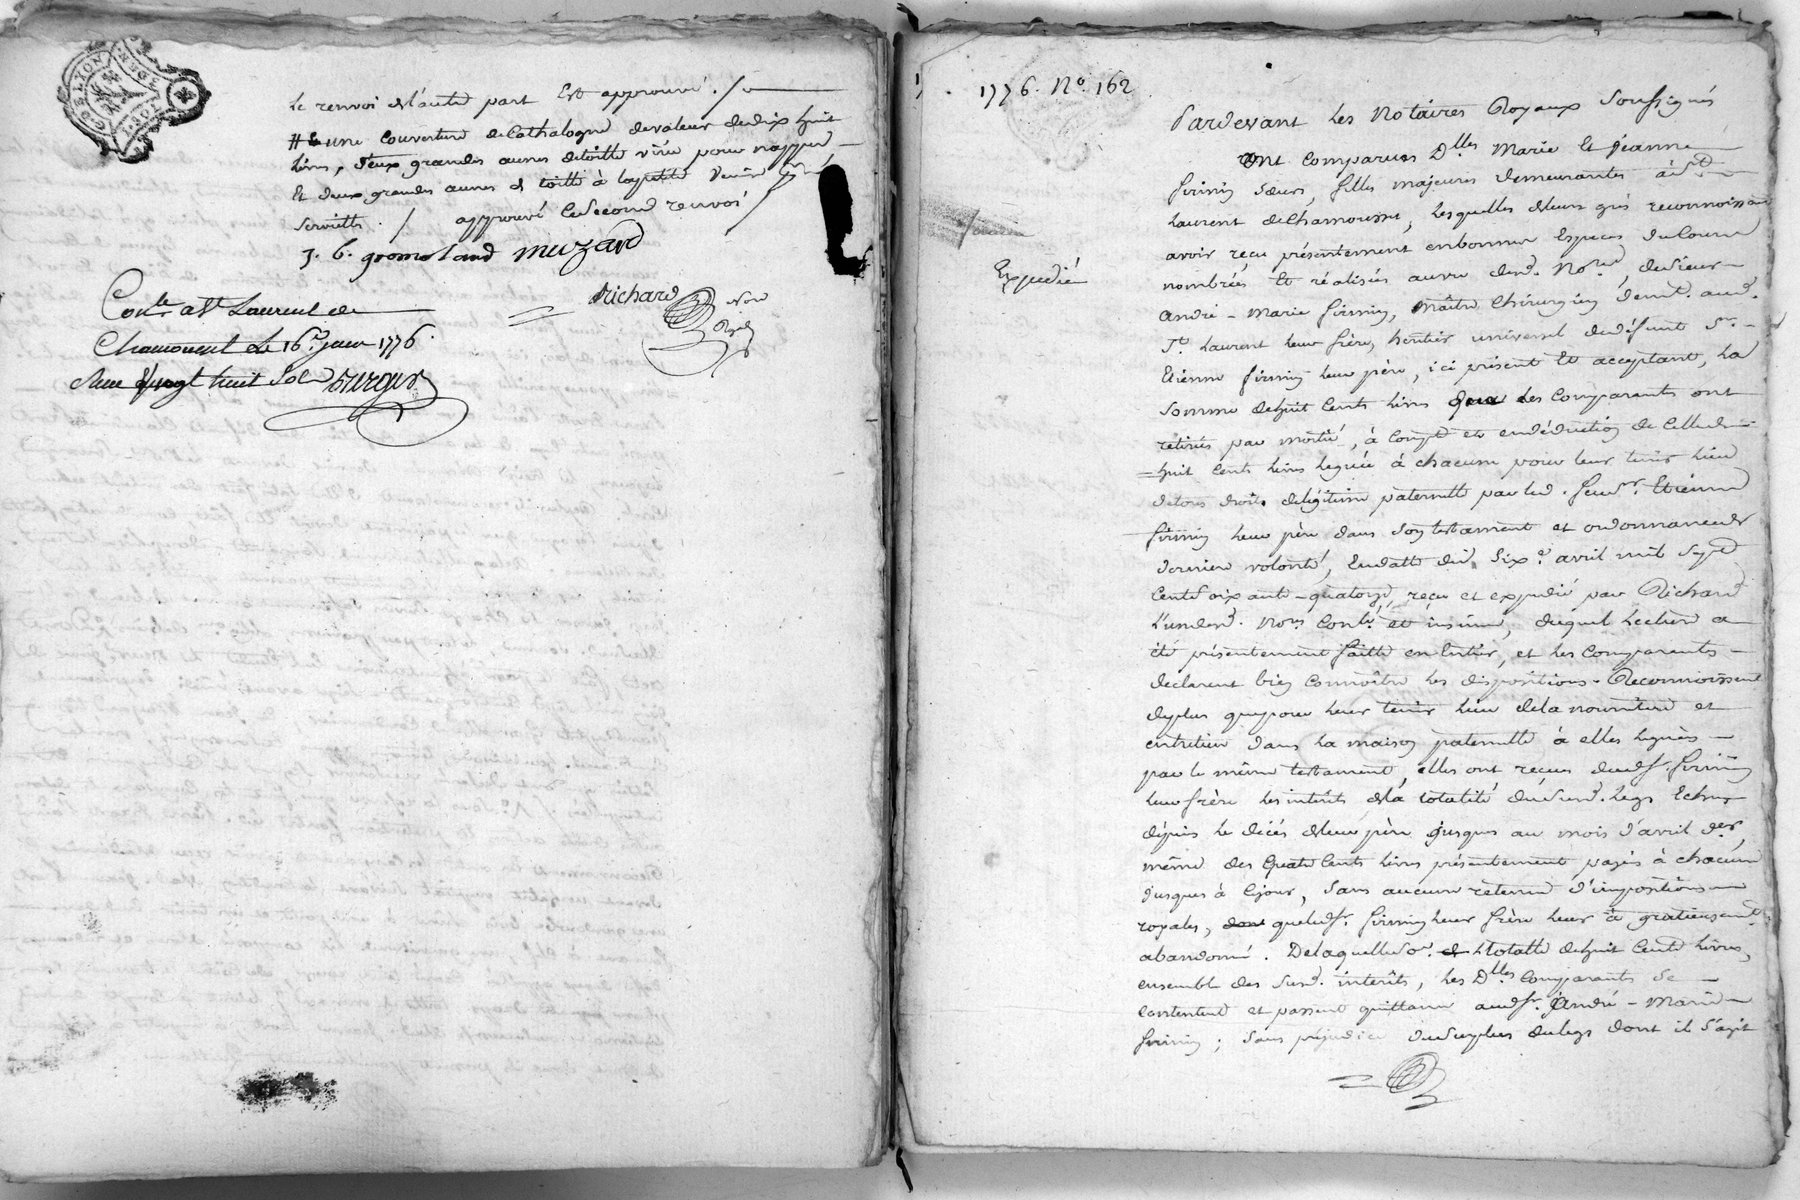 G. DE LYON
le renvoi de l'autre part Est approuvé ./.
# une Couverture de Cathalogne de valeur de dix huit
livres, deux grandes aunes de toille pour nappes
Et deux grandes aunes de toille à la petite Venise pour
serviette ./ approuvé le second renvoi /
J. B. gromolard muzard
Richard Nore
Royal
Con.lé a St Laurent de
Chamousset le 16.e janv 1776.
Reçu vingt huit sols
1776. No 162
Pardevant les Notaires Royaux Soussignés
Ont comparues Dlles Marie Et jeanne
firmin sœurs, filles majeures demeurantes à St
Laurent de Chamousset, lesquelles de leur gré reconnoissent
avoir reçu présentement en bonnes Especes du Cours
nombrées Et réalisés au vu desd. Nores, du sieur
Expedié
André - Marie firmin, Maître Chirurgien demt. aud.
St. Laurent leur frère, héritier universel de défunt Sr.
Etienne firmin leur père, ici présent Et acceptant, La
somme de huit Cents livres que les Comparantes ont
retirés par moitié, à Compte et en déduction de Celle de
huit Cents livres leguée à chacune pour leur tenir lieu
de tous droits de légitime paternelle par led. feu Sr. Etienne
firmin leur père dans son testament et ordonnance de
derniere volonté, En datte du six.e avril mil sept
Cent soixante-quatorze, reçu et expedié par Richard
l'un desd. Nores Conlé. et insinué, duquel lecture a
été présentement faitte en Entier, et les Comparantes
declarent bien Connoitre les dispositions. Reconnoissent
de plus que pour leur tenir lieu de la nourriture et
entretien dans la maison paternelle à elles legués
par le même testament, elles ont reçues dud Sr. firmin
leur frère les intérêts de la totalité du susd. legs Echus
depuis le décés de leur père jusques au mois d'avril der,
même des Quatre Cents livres présentement payés à chacune
jusques à ce jour, sans aucune retenue d'impositions
royales, que led Sr. firmin leur frère leur a gratieusemt.
abandonné. De laquelle so.e totalle de huit Cents livres,
ensemble des susd. intérêts, les Dlles Comparantes se
contentent et passent quittance aud Sr. André - Marie
firmin ; sans préjudice du surplus du legs dont il s'agit